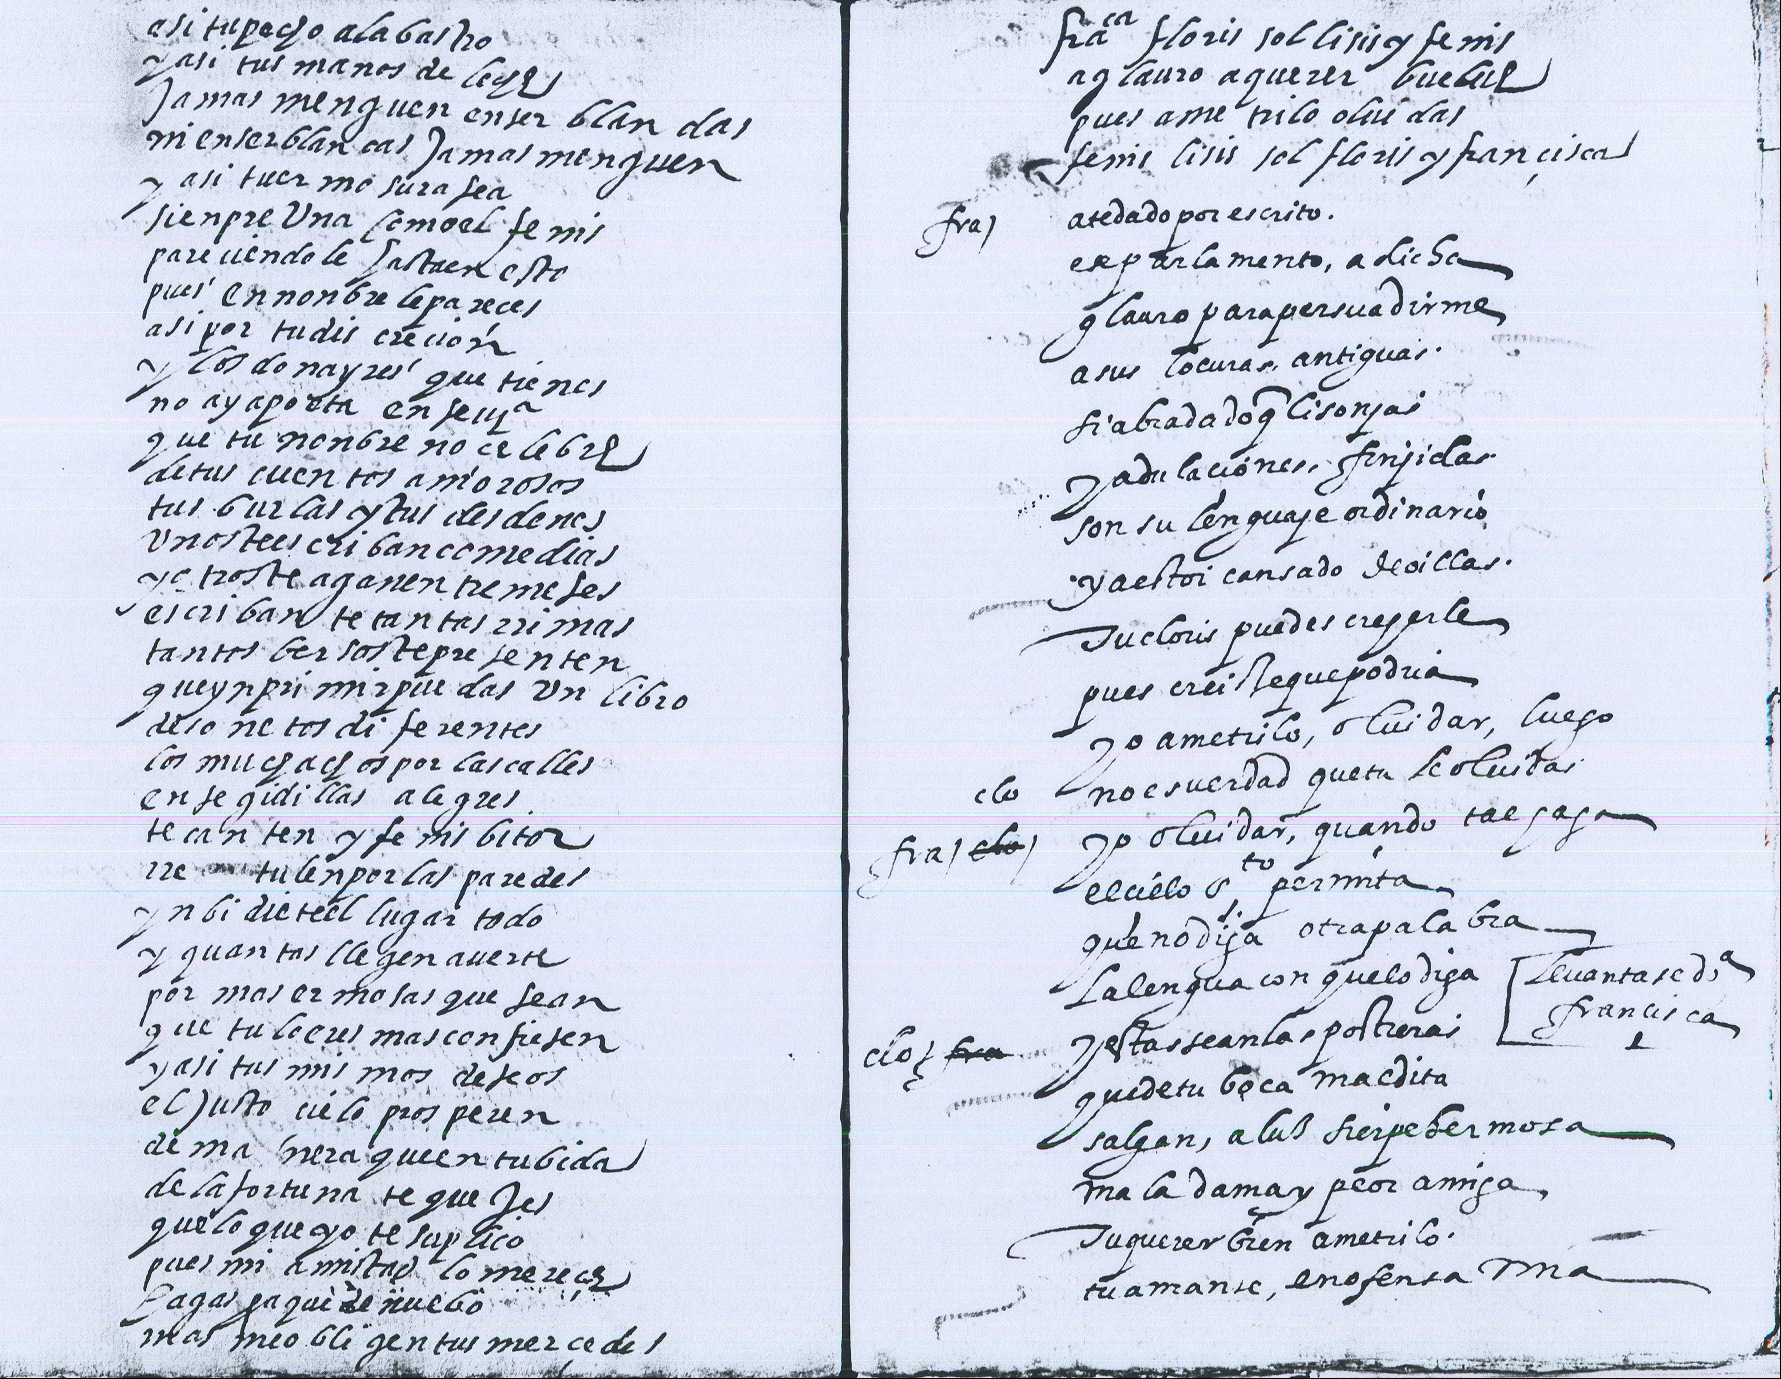 asi tu pecho alabastro
y asi tus manos de leche
Jamas menguen en ser blan das
ni en ser blan cas Jamas menguen
y asi tu er mosura sea
sienpre Una como el fe nis
pareciendole hasta en esto
pues en nonbre le pareces
asi por tu dis crecion
y los donayres que tienes
no ay a poeta en seuª
que tu nonbre no ce lebre
de tus cuentos amorosos
tus burlas y tus desdenes
Unos te es cri ban comedias
y otros te agan en tre me ses
escriban te tantas rrimas
tantos bersos te pre senten
que ynpri mir pue das Un libro
de so ne tos di ferentes
los muchachos por las calles
en segidillas alegres
te can ten y fe nis bitor
rre tulen por las paredes
ynbi die te el lugar todo
y quantas llegen a uerte
por mas er mosas que sean
que tu lo eres mas confiesen
y asi tus mis mos deseos
el Justo cielo pros peren
de ma nera que en tu bida
de la fortuna te que Jes
que lo que yo te suplico
pues mi amistad lo mereçe
hagas que de nuebo
mas me obli gen tus merçedes
franca floris sol lisis y fe nis
a q lauro a querer buelue
pues ametrilo oluidas
fenis lisis sol floris y françisca
fra) a te dado por escrito.
ese parlamento, a dicha
q lauro para persuadirme
a sus locuras, antiguas.
si abra dado q lisonjas
y adulaciones, finjidas
son su lenguaje ordinario
ya estoi cansado de oillas.
Tu cloris puedes creyerle
pues creiste que podria
yo ametrilo, oluidar, luego
clo no es uerdad que tu le oluidas
fra) clo) yo oluidar, quando tal haga
el cielo sto permita
que no diga otra palabra
la lengua con que lo diga [leuantase dª
francisca
clo} fra y estas sean las postreras
que de tu boca maldita
salgan, a luz sierpe hermosa
mala dama y peor amiga
Tu querer bien ametrilo.
tu amante, en ofensa mia